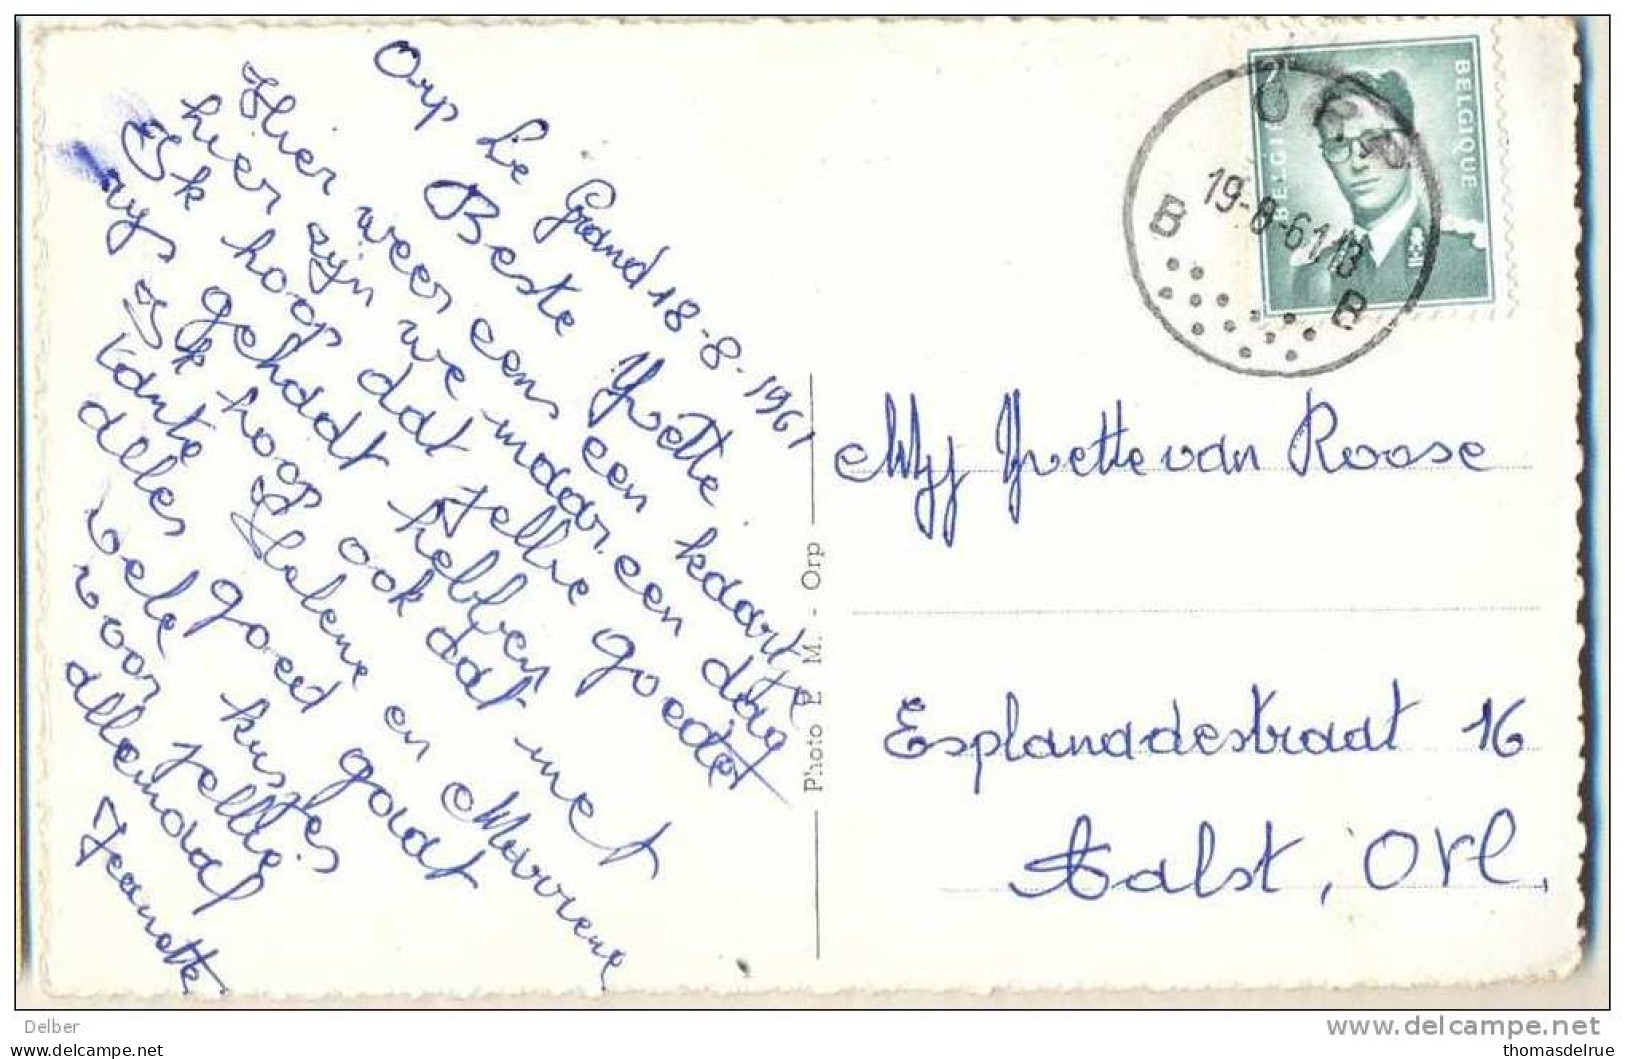 Orp Le Grand 18-8-1961
Beste Yvette
Hier weer eens een kaartje
hier zijn we maar een dag
Ik hoop dat jellie goede
rys gehaat hebben
Ik hoop ook dat met
tante Helene en
alles goed gaat
vele kustjes
voor jellie
allemaal
Jeanette
BELGIE BELGIQUE
ORP
19-8-61
B B
Photo E M. - Orp
Mej Yvette van Roose
Esplanadestraat 16
Aalst, OVl.
Delber
delcampe.net
www.delcampe.net
thomasdelrue